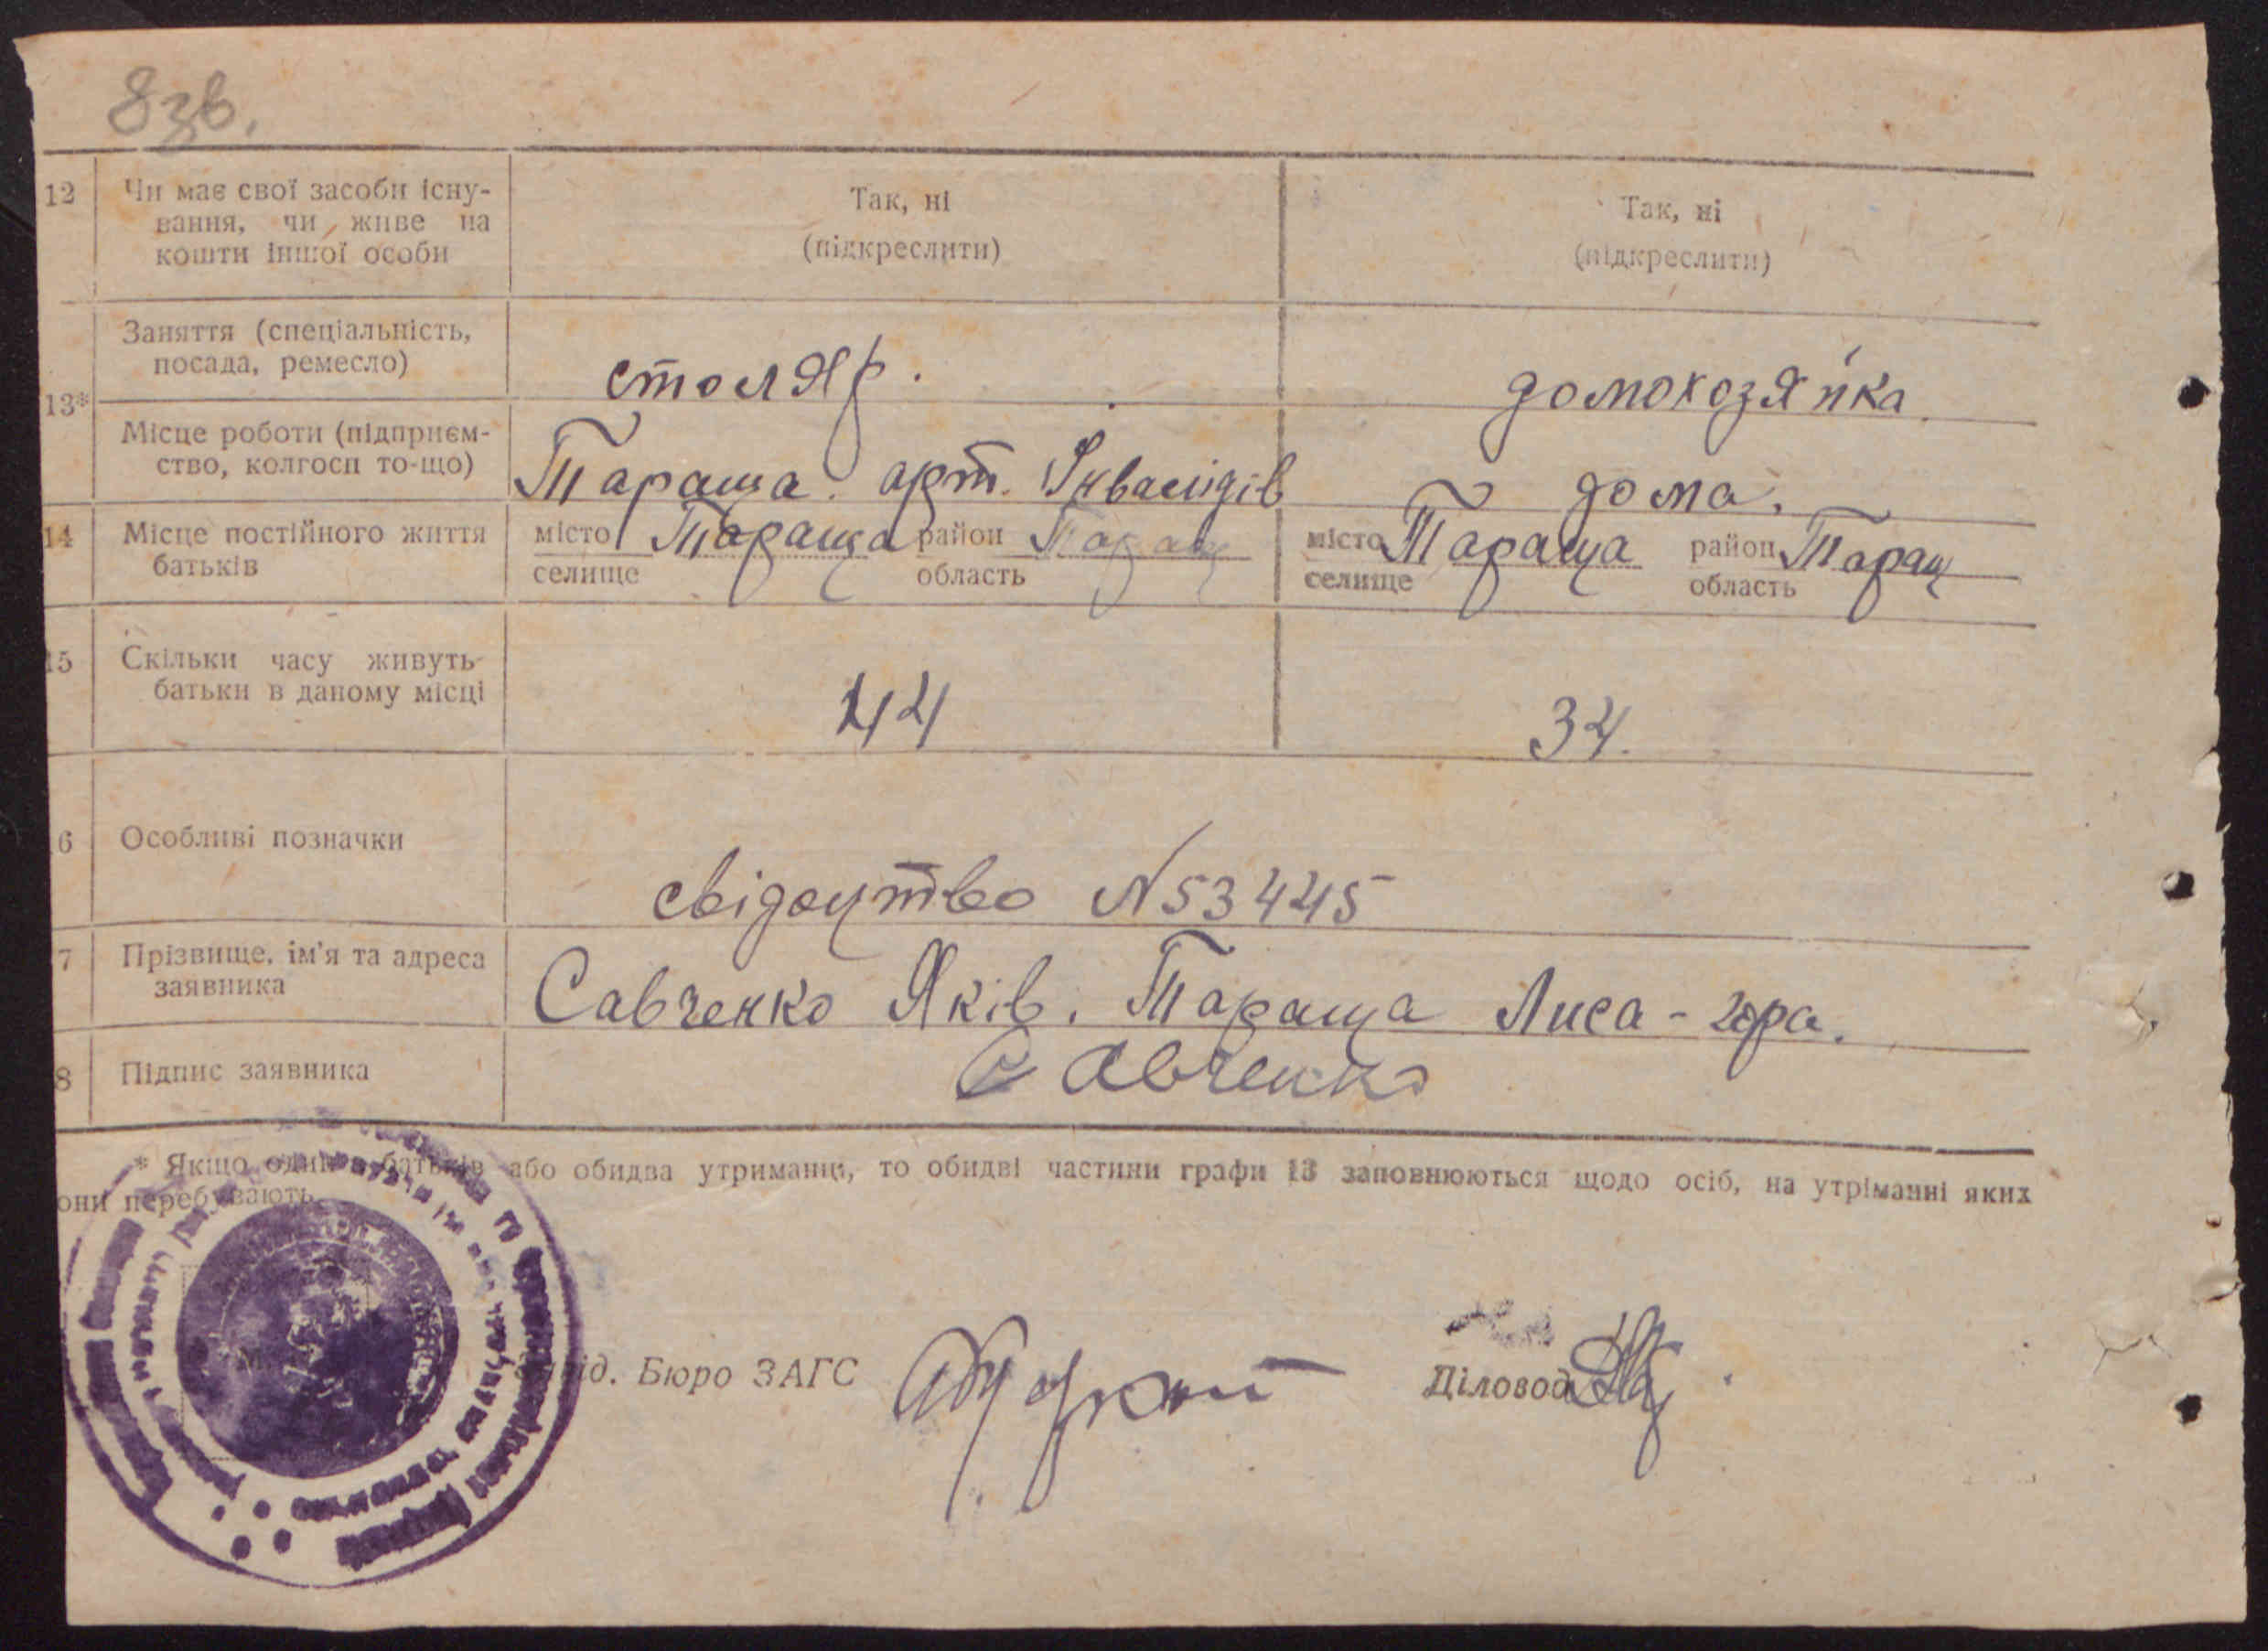 8зв.
12 Чи має свої засоби існу-
вання, чи живе на
кошти іншої особи
Так, ні
(підкреслити)
Так, ні
(підкреслити)
13*
Заняття (спеціальність,
посада, ремесло)
столяр.
домохозяйка
Місце роботи (підприєм-
ство, колгосп то-що)
Тараща. арт. Інвалідів
дома.
14 Місце постійного життя
батьків
місто Тараща район Таращ
селище область
місто Тараща район Таращ
селище область
15 Скільки часу живуть
батьки в даному місці
44
34.
6 Особливі позначки
свідоцтво N53445
7 Прізвище, ім'я та адреса
заявника
Савченко Яків. Тараща Лиса-гора.
8 Підпис заявника
Савченко
* Якщо один з батьків або обидва утриманці, то обидві частини графи 13 заповнюються щодо осіб, на утріманні яких
они перебувають.
Бюро ЗАГС
Діловод